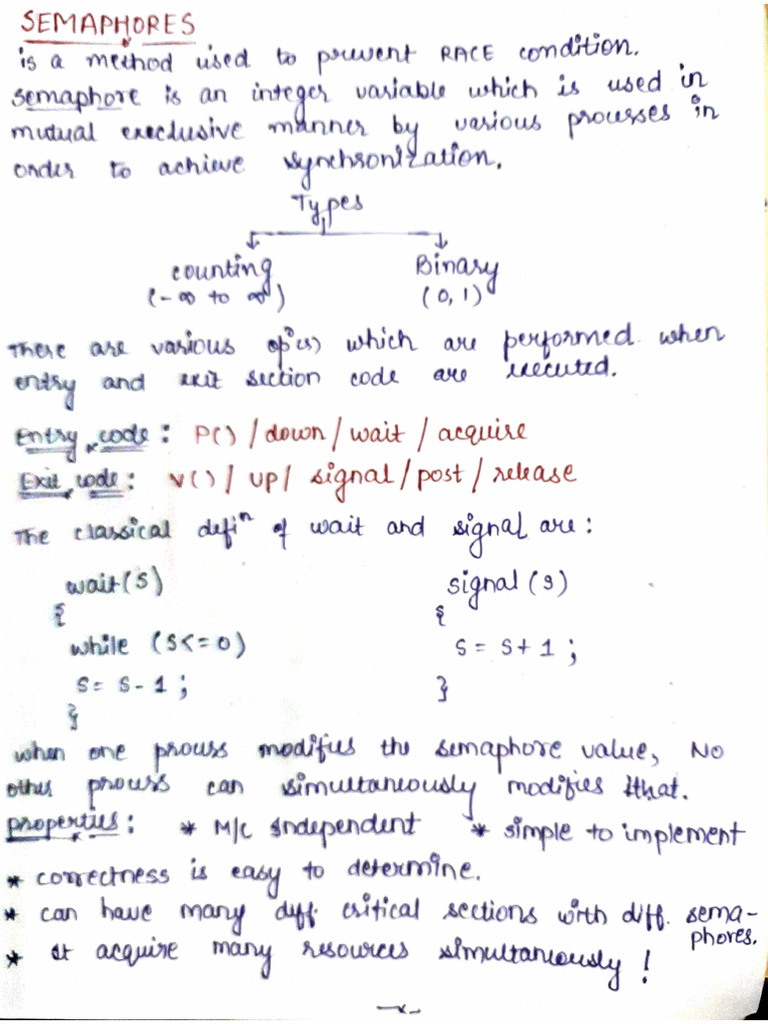 SEMAPHORES
is a method used to prevent RACE condition.
semaphore is an integer variable which is used in
mutual execlusive manner by various processes in
order to achieve synchronization.
Types
counting Binary
(-∞ to ∞) (0, 1)
There are various opⁿ(s) which are performed when
entry and exit section code are executed.
Entry code : P() / down / wait / acquire
Exit code : V() / UP / signal / post / release
The classical defiⁿ of wait and signal are :
wait(S) signal (S)
{ {
while (S<=0) S = S+1 ;
S = S-1 ; }
}
when one process modifies the semaphore value, No
other process can simultaneously modifies that.
properties : * M/C Independent * simple to implement
* correctness is easy to determine.
* can have many diff. critical sections with diff. sema-
phores.
* It acquire many resources simultaneously !
—x—